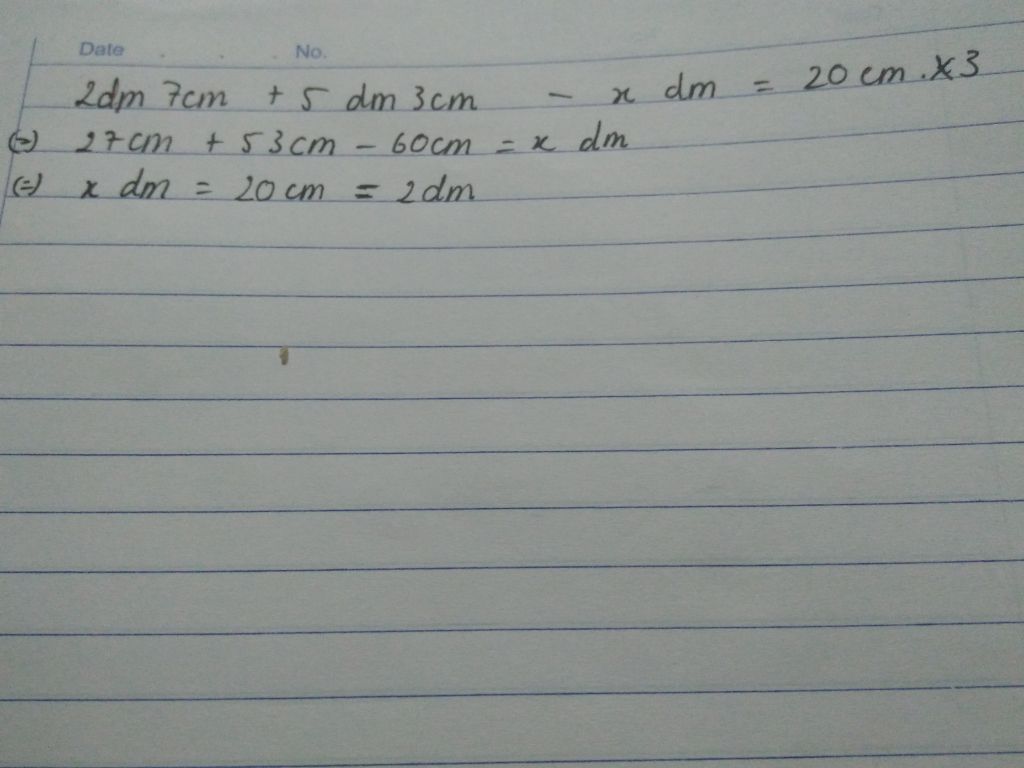 Date . . . No.
2dm 7cm + 5 dm 3cm - x dm = 20 cm . x 3
(=) 27cm + 53cm - 60cm = x dm
(=) x dm = 20 cm = 2dm